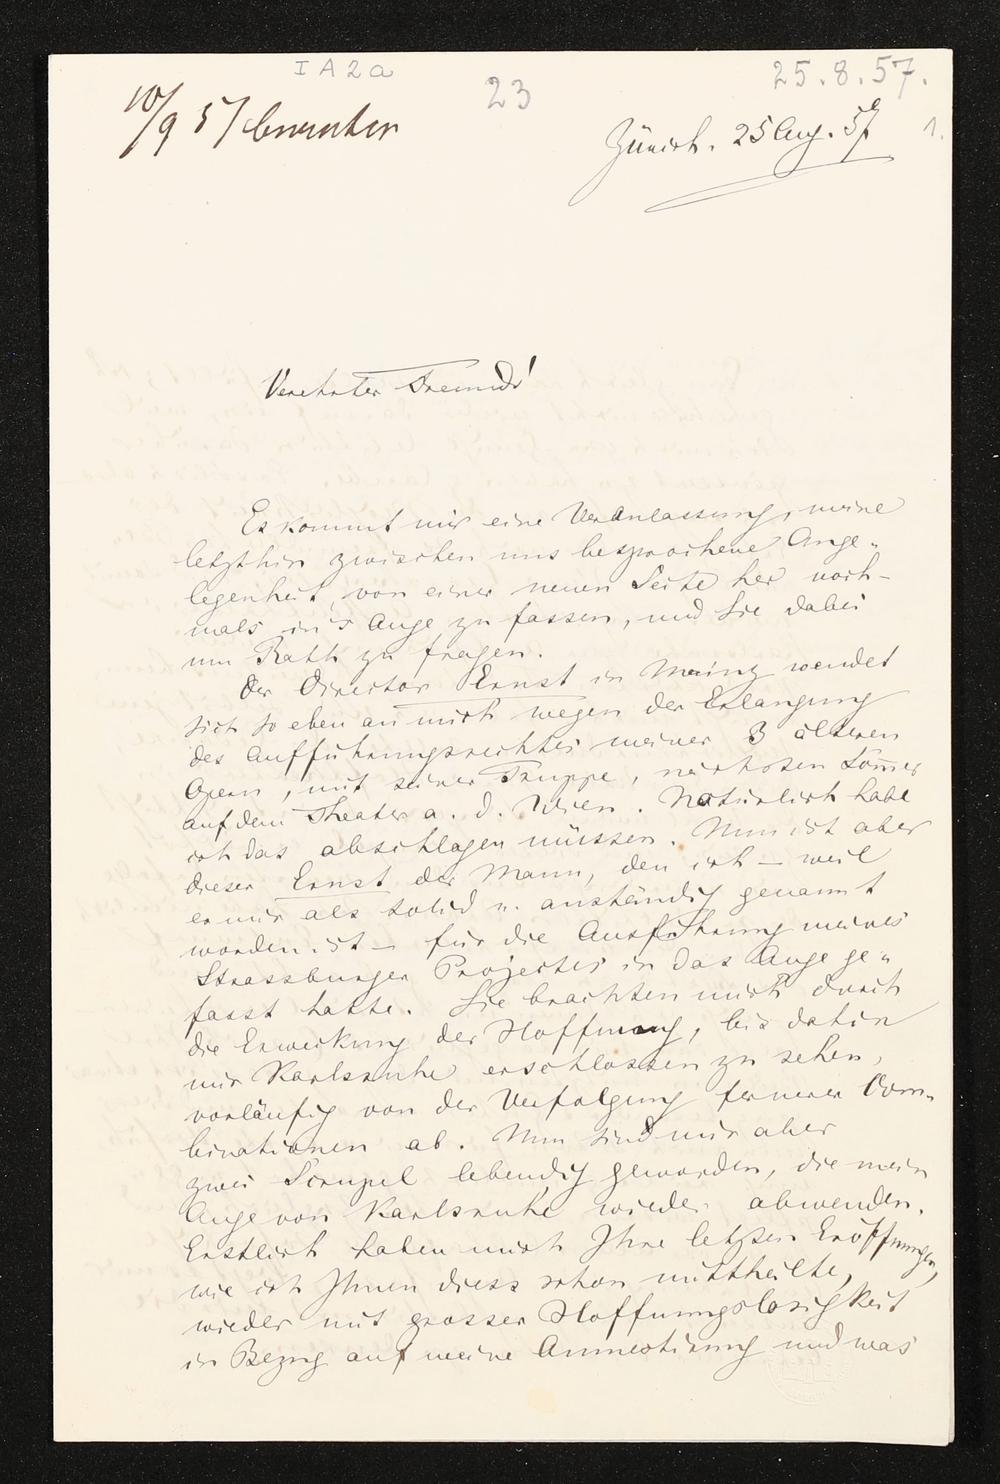 I A 2 a
23
25.8.57.
10/9 57
Zürich. 25 Aug. 57
1.
Verehrter Freund!
Es kommt mir eine Veranlassung, meine
letzthin zwischen uns besprochene Ange-
legenheit, von einer neuen Seite her noch-
mals in's Auge zu fassen, und Sie dabei
um Rath zu fragen.
Der Director Ernst in Mainz wendet
sich so eben an mich wegen der Erlangung
des Aufführungsrechtes meiner 3 älteren
Opern, mit seiner Truppe, nächsten Som̅er
auf dem Theater a. d. Wien. Natürlich habe
ich das abschlagen müssen. Nun ist aber
dieser Ernst der Mann, den ich – weil
er mir als solid u. anständig genannt
worden ist – für die Ausführung meines
Strassburger Projectes in das Auge ge-
fasst hatte. Sie brachten mich durch
die Erweckung der Hoffnung, bis dahin
mir Karlsruhe erschlossen zu sehen,
vorläufig von der Verfolgung fernerer Com-
binationen ab. Nun sind mir aber
zwei Scrupel lebendig geworden, die mein
Auge von Karlsruhe wieder abwenden.
Erstlich haben mich Ihre letzten Eröffnungen,
wie ich Ihnen diess schon mittheilte,
wieder mit grosser Hoffnungslosigkeit
in Bezug auf meine Amnestirung und was